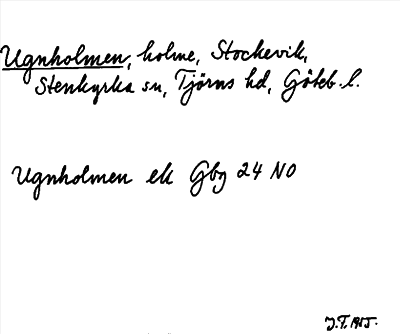 Ugnholmen, holme, Stockevik,
Stenkyrka sn, Tjörns hd, Göteb. l.
Ugnholmen ek Gbg 24 NO
J.T. 1955.